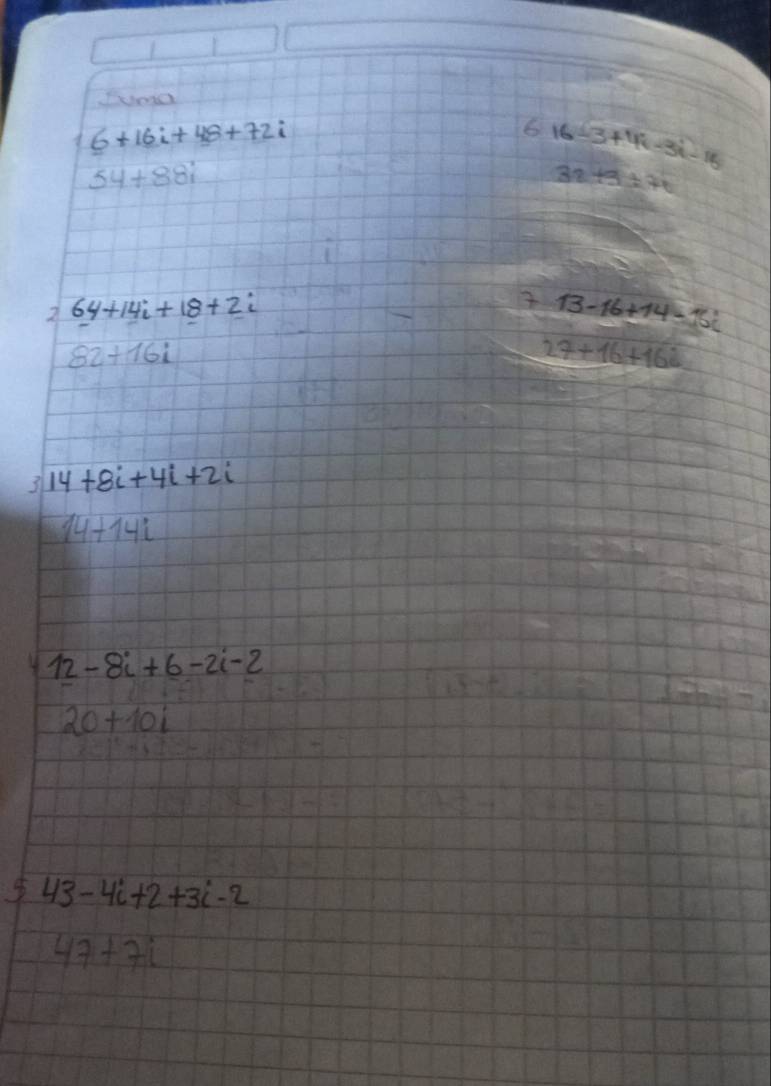 Suma
1 6+16i+48+72i
54+88i
2 64+14i+18+2i
82+16i
3 14+8i+4i+2i
14+14i
4 12-8i+6-2i-2
20+10i
5 43-4i+2+3i-2
47+7i
6 16-3+4i-3i-16
32+3+7i
7 13-16+14-16i
27+16+16i